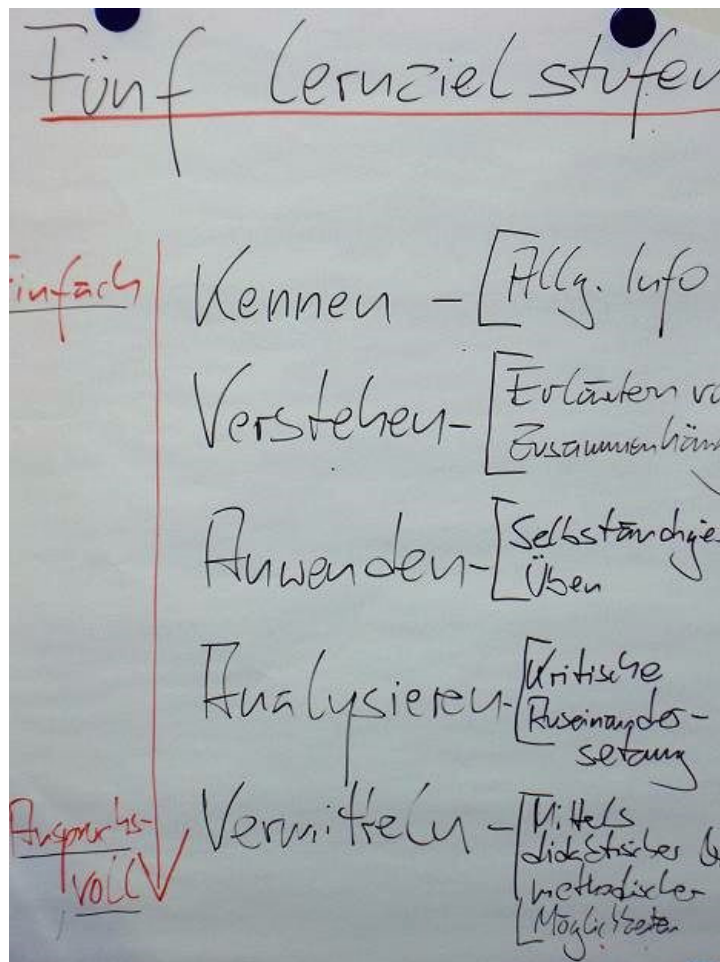 Fünf Lernzielstufen
Einfach
Kennen - [Allg. Info
Verstehen - [Erläutern vo
Zusammenhän
Anwenden - [Selbständiges
Üben
Analysieren - [Kritische
Auseinander-
setzung
Anspruchs-
voll
Vermitteln - [Mittels
didaktischer &
methodischer
Möglichkeiten